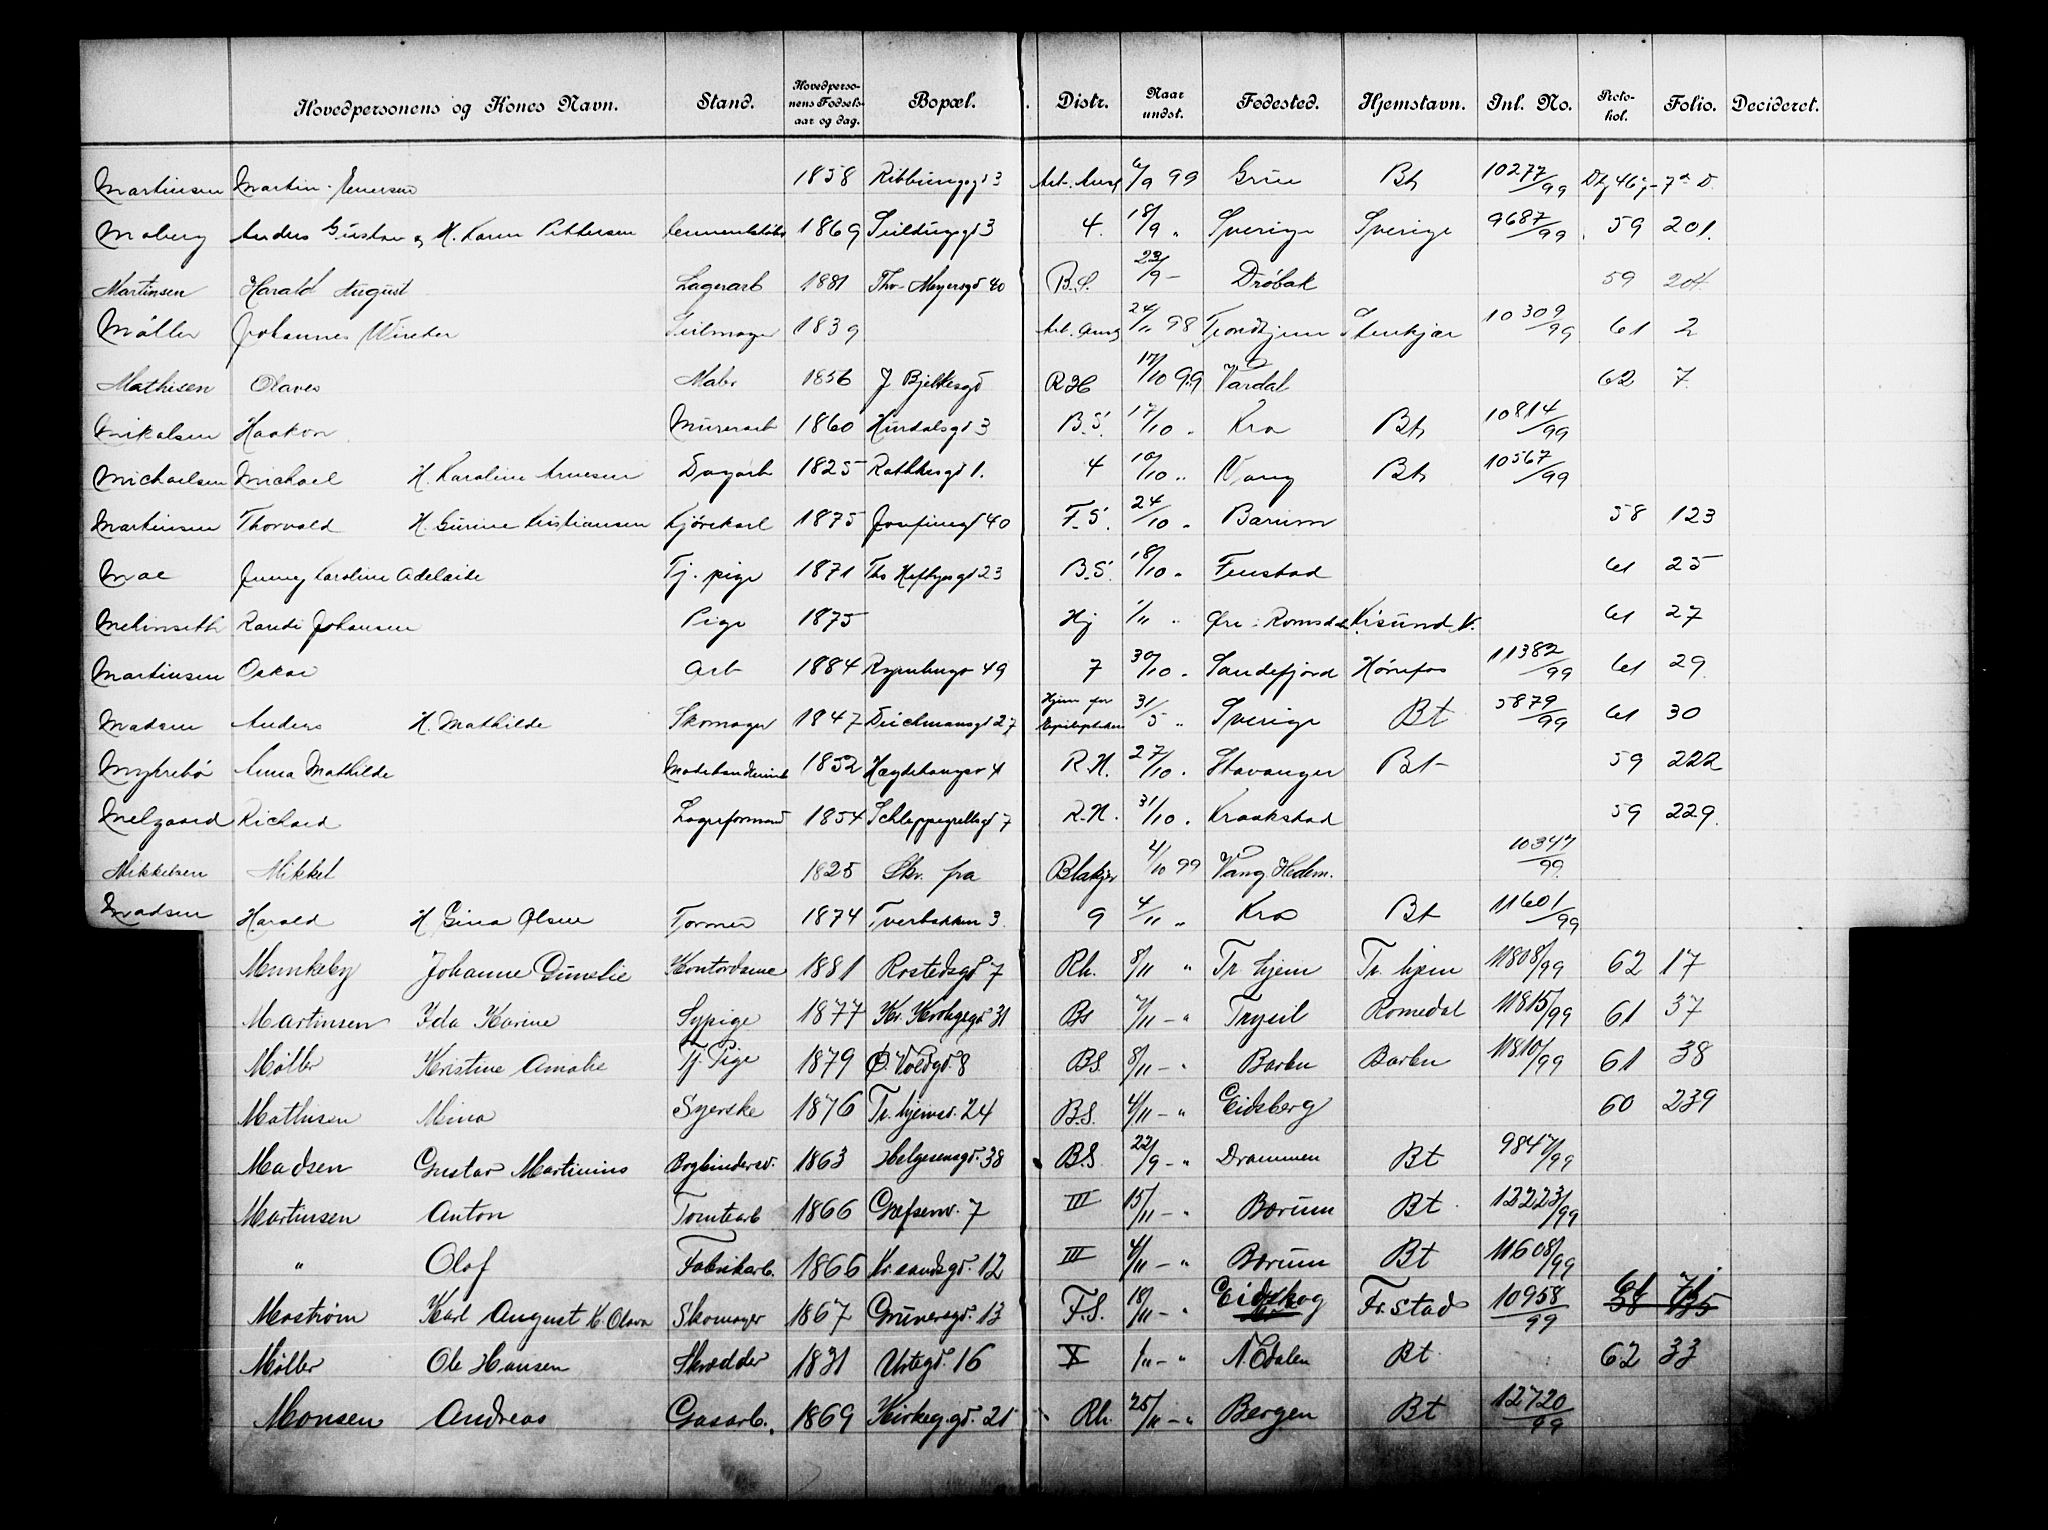 Hovedpersonens og Kones Navn. Stand. Hovedpersonens Fødselsaar og dag. Bopæl. Distr. Naar undst. Fødested. Hjemstavn. Inl. No. Protokol. Folio. Decideret.
Martinsen Martin 1858 3 6/9 99 Grue Bt 10277/99
Moberg Anders Gustav og H. Karen Pettersen 1869 3 4. 18/9 „ Sverige Sverige 9687/99 59 201.
Martinsen Harald August Lagerarb 1881 Thv. Meyersgd 40 B.S. 23/9 - Drøbak 59 204
Møller Johannes Seilmager 1839 24/11 98 Trondhjem Stenkjær 10309/99 61 2
Mathisen Olaves Maler 1856 J. Bjelkesgd RH 17/10 99 Vardal 62 7.
Mikalsen Haakon Murerarb 1860 3 B.S. 17/10 „ Kra Bt 10814/99
Michaelsen Michael H. Karoline Arnesen Dagarb 1825 Rathkesgd 1. 4 10/10 „ Vang Bt 10567/99
Martinsen Thorvald H. Gurine Kristiansen Kjørekarl 1875 Josefinegd 40 F.S. 24/10 „ Bærum 58 123
Moe Jenny Karoline Adelaide Tj. pige 1871 Ths Heftyesgd 23 B.S. 18/10 „ 61 25
Randi Johansen Pige 1875 Hj 1/11 „ Øre i Romsdal Kr.sund N. 61 27
Martinsen Oskar Arb 1884 49 7 30/10 „ Sandefjord Hønefos 11382/99 61 29
Madsen Anders H. Mathilde Skomager 1847 Deichmansgd 27 Hjem for 31/5 „ Sverige Bt 5879/99 61 30
Myhrebø Anna Mathilde 1852 Hægdehaugsv 4 R.H. 27/10 „ Stavanger Bt 59 222
Melgaard Richard Lagerformand 1854 Schleppegrellsgd 7 R.H. 31/10 „ Kraakstad 59 229.
Mikkelsen Mikkel 1825 Skr. fra Blakjer 4/10 99 Vang Hedem. 10347/99
Madsen Harald H Gina Olsen Former 1874 Tverbakken 3. 9 4/11 „ Kra Bt 11601/99
Munkeby Johanne 1881 Rostedsgd 7 Rh. 8/11 „ Tr. hjem Tr. hjem 11808/99 62 17
Martinsen Ida Karine Sypige 1877 31 Bs 7/11 - „ Trysil Romedal 11815/99 61 37
Møller Kristine Amalie Tj. Pige 1879 Ø. Voldgd. 8 BS. 8/11 - „ Barbu Barbu 11810/99 61 38
Mathisen Mina Syerske 1876 Tr. hjemsv. 24 B.S. 4/11 - „ Eidsberg 60 239
Madsen Gustav Martinius Bogbindersv. 1863 Helgesensgd. 38 B.S. 22/9 - „ Drammen Bt 9847/99
Martinsen Anton Tomtearb 1866 Grefsenv. 7 III 15/11 - „ Bærum Bt 12223/99
„ Olaf Fabrikarb. 1866 Kr. sandsgd. 12 III 4/11 - „ Bærum Bt 11608/99
Mostrøm Karl August H. Olava Skomager 1867 Grünersgd. 13 F.S. 18/11 - „ Eidskog Fr. stad 10958/99
Møller Ole Hansen Skrædder 1831 Urtegd. 16 X 1/11 - „ N. Odalen Bt 62 33
Monsen Andreas Gasarb. 1869 Kirkeg.gd. 21 Rh. 25/11 - „ Bergen Bt 12720/99